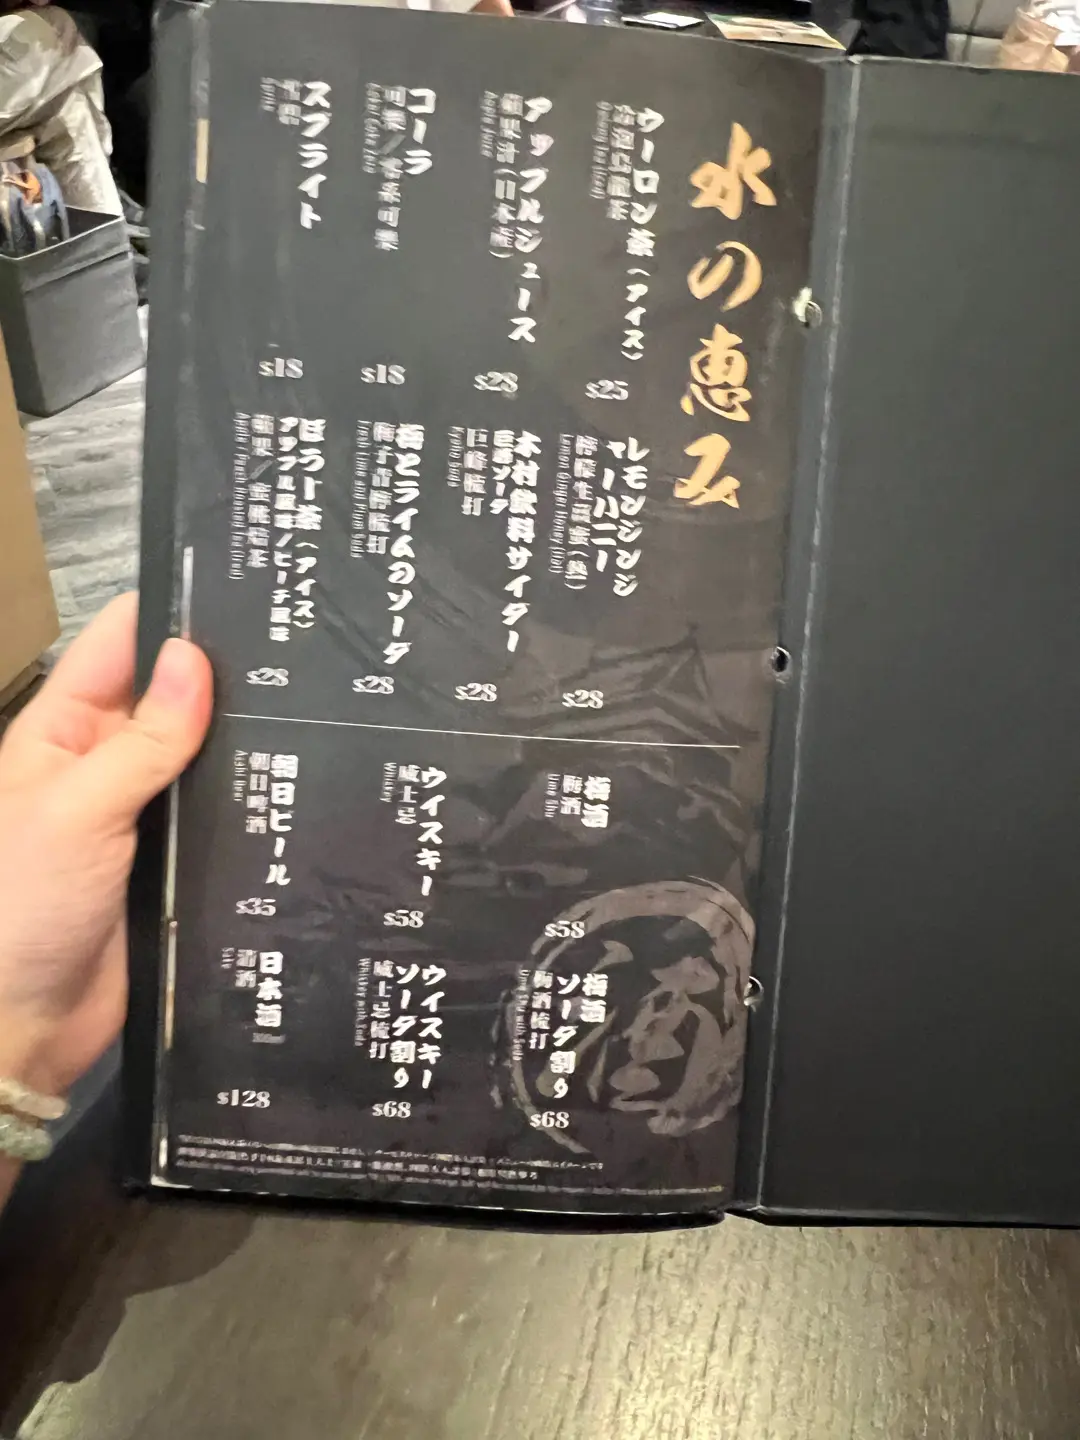 水の恵み
ウーロン茶(アイス)
烏龍茶
Oolong Tea (Iced)
$25
アップルジュース
蘋果汁(日本産)
Apple Juice
$28
コーラ
可樂/零系可樂
$18
スプライト
雪碧
Sprite
$18
レモンジンジャーハニー
檸檬生薑蜜(熱)
Lemon Ginger Honey (Hot)
$28
木村飲料サイダー
巨峰ソーダ
巨峰梳打
Kyoho Soda
$28
梅とライムのソーダ
梅子青檸梳打
Fresh Lime and Plum Soda
$28
ほうじ茶(アイス)
アップル風味/ピーチ風味
蘋果/蜜桃焙茶
Apple / Peach Roasted Tea (Iced)
$28
梅酒
梅酒
Ume Shu
$58
ウイスキー
威士忌
Whiskey
$58
朝日ビール
朝日啤酒
Asahi Beer
$35
梅酒
ソーダ割り
梅酒梳打
Ume Shu with Soda
$68
ウイスキー
ソーダ割り
威士忌梳打
Whiskey with Soda
$68
日本酒
清酒
Sake
$128